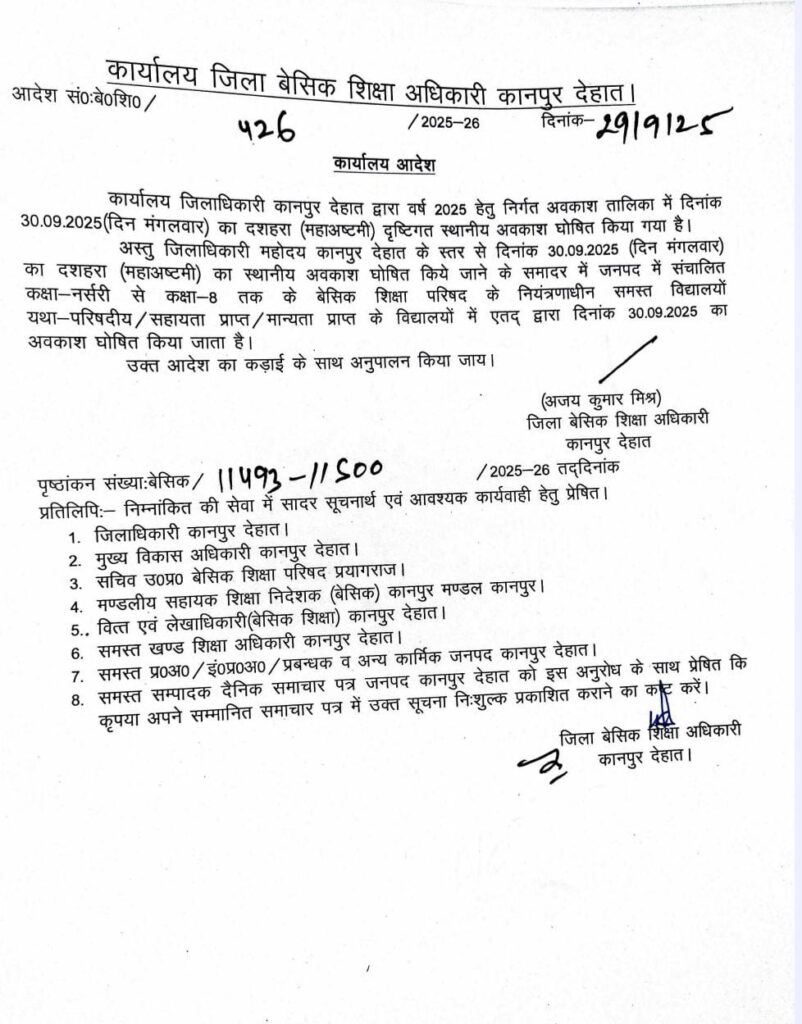 कार्यालय जिला बेसिक शिक्षा अधिकारी कानपुर देहात।
आदेश सं0:बे0शि0 / 426 /2025–26 दिनांक– 29/9/25
कार्यालय आदेश
कार्यालय जिलाधिकारी कानपुर देहात द्वारा वर्ष 2025 हेतु निर्गत अवकाश तालिका में दिनांक
30.09.2025(दिन मंगलवार) का दशहरा (महाअष्टमी) दृष्टिगत स्थानीय अवकाश घोषित किया गया है।
अस्तु जिलाधिकारी महोदय कानपुर देहात के स्तर से दिनांक 30.09.2025 (दिन मंगलवार)
का दशहरा (महाअष्टमी) का स्थानीय अवकाश घोषित किये जाने के समादर में जनपद में संचालित
कक्षा–नर्सरी से कक्षा–8 तक के बेसिक शिक्षा परिषद के नियंत्रणाधीन समस्त विद्यालयों
यथा–परिषदीय/सहायता प्राप्त/मान्यता प्राप्त के विद्यालयों में एतद् द्वारा दिनांक 30.09.2025 का
अवकाश घोषित किया जाता है।
उक्त आदेश का कड़ाई के साथ अनुपालन किया जाय।
(अजय कुमार मिश्र)
जिला बेसिक शिक्षा अधिकारी
कानपुर देहात
पृष्ठांकन संख्या:बेसिक/ 11493–11500 /2025–26 तद्दिनांक
प्रतिलिपि:– निम्नांकित की सेवा में सादर सूचनार्थ एवं आवश्यक कार्यवाही हेतु प्रेषित।
1. जिलाधिकारी कानपुर देहात।
2. मुख्य विकास अधिकारी कानपुर देहात।
3. सचिव उ0प्र0 बेसिक शिक्षा परिषद प्रयागराज।
4. मण्डलीय सहायक शिक्षा निदेशक (बेसिक) कानपुर मण्डल कानपुर।
5.. वित्त एवं लेखाधिकारी(बेसिक शिक्षा) कानपुर देहात।
6. समस्त खण्ड शिक्षा अधिकारी कानपुर देहात।
7. समस्त प्र0अ0/इं0प्र0अ0/प्रबन्धक व अन्य कार्मिक जनपद कानपुर देहात।
8. समस्त सम्पादक दैनिक समाचार पत्र जनपद कानपुर देहात को इस अनुरोध के साथ प्रेषित कि
कृपया अपने सम्मानित समाचार पत्र में उक्त सूचना निःशुल्क प्रकाशित कराने का कष्ट करें।
जिला बेसिक शिक्षा अधिकारी
कानपुर देहात।